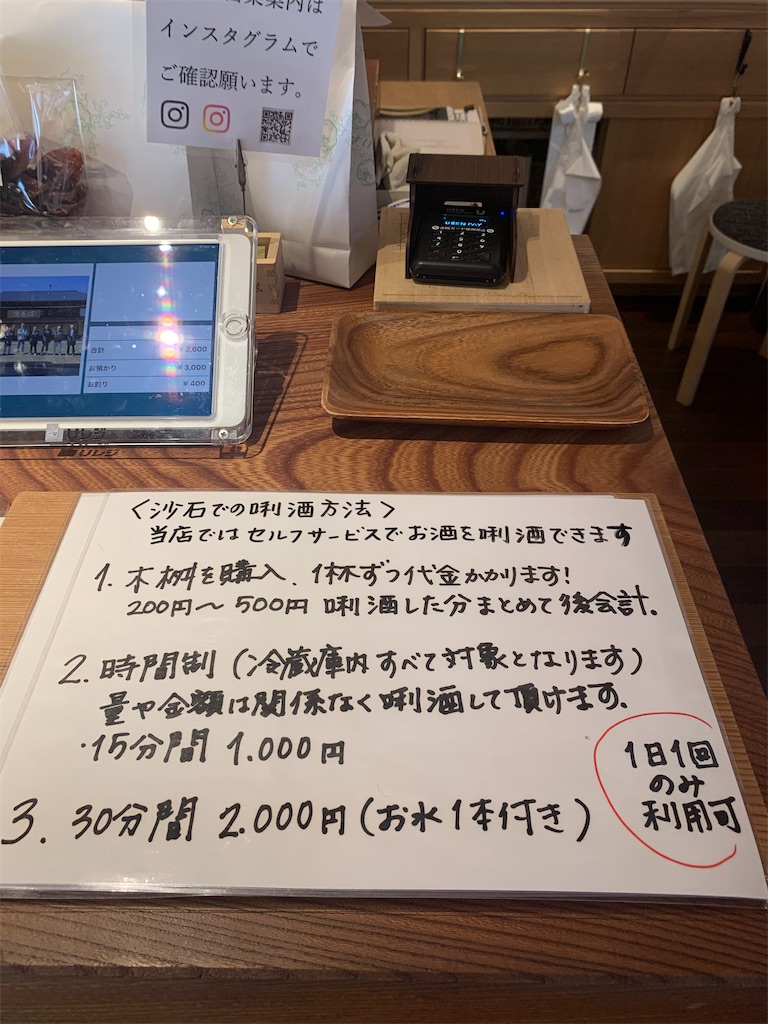 インスタグラムで
ご確認願います。
USEN PAY
合計 ¥2,600
お預かり ¥3,000
お釣り ¥400
Uレジ
<沙石での唎酒方法>
当店ではセルフサービスでお酒を唎酒できます
1. 木桝を購入、1杯ずつ代金かかります!
200円〜500円 唎酒した分まとめて後会計。
2. 時間制(冷蔵庫内すべて対象となります)
量や金額は関係なく唎酒して頂けます。
・15分間 1.000円
3. 30分間 2.000円(お水1本付き)
1日1回
のみ
利用可